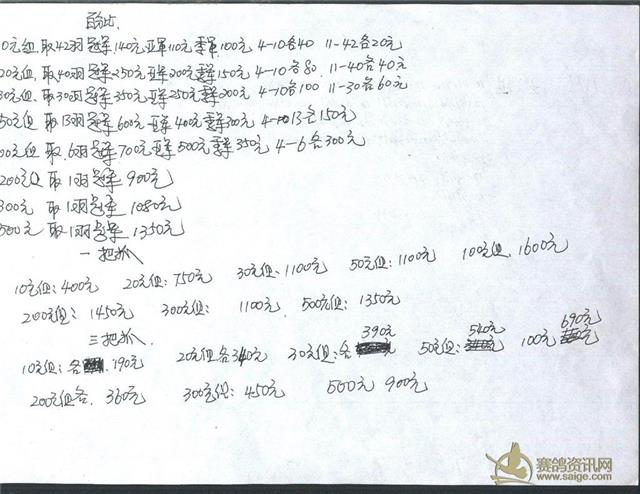 百分比
0元组、取42羽冠军140元亚军110元季军100元 4-10各40 11-42各20元
20元组、取40羽冠军250元亚军200元季军150元 4-10各80 11-40各40元
30元组、取30羽冠军350元亚军250元季军200元 4-10各100 11-30各60元
50元组 取13羽冠军600元亚军400元季军300元 4-13各150元
00元组 取6羽冠军700元亚军500元季军350元 4-6各300元
200元 取1羽冠军900元
300元 取1羽冠军1080元
500元 取1羽冠军1350元
一把抓
10元组:400元 20元组:750元 30元组:1100元 50元组:1100元 100元组、1600元
200元组:1450元 300元组: 1100元、500元组:1350元
三把抓、
390元 540元 690元
10元组:各 190元 20元组各340元 30元组:各 50元组: 100元
200元组各、360元 300元组:450元 500元 900元
赛鸽资讯网
www.saige.com